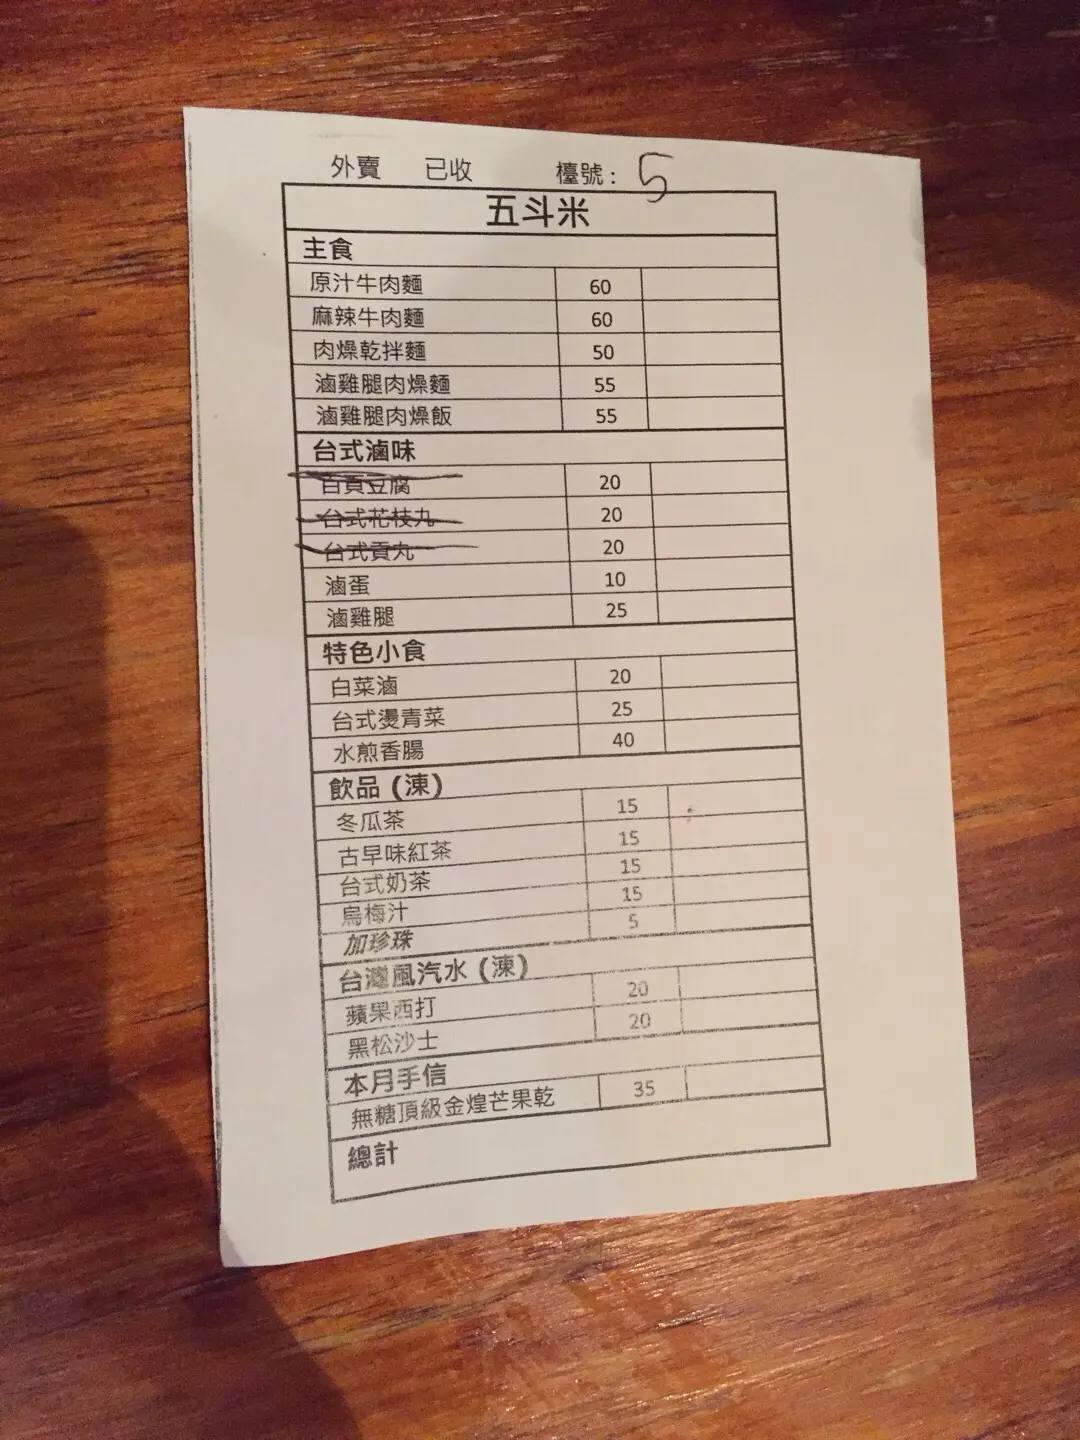 外賣 已收 檯號: 5
五斗米
主食
原汁牛肉麵 60
麻辣牛肉麵 60
肉燥乾拌麵 50
滷雞腿肉燥麵 55
滷雞腿肉燥飯 55
台式滷味
百頁豆腐 20
台式花枝丸 20
台式貢丸 20
滷蛋 10
滷雞腿 25
特色小食
白菜滷 20
台式燙青菜 25
水煎香腸 40
飲品 (凍)
冬瓜茶 15
古早味紅茶 15
台式奶茶 15
烏梅汁 15
加珍珠 5
台灣風汽水 (凍)
蘋果西打 20
黑松沙士 20
本月手信
無糖頂級金煌芒果乾 35
總計